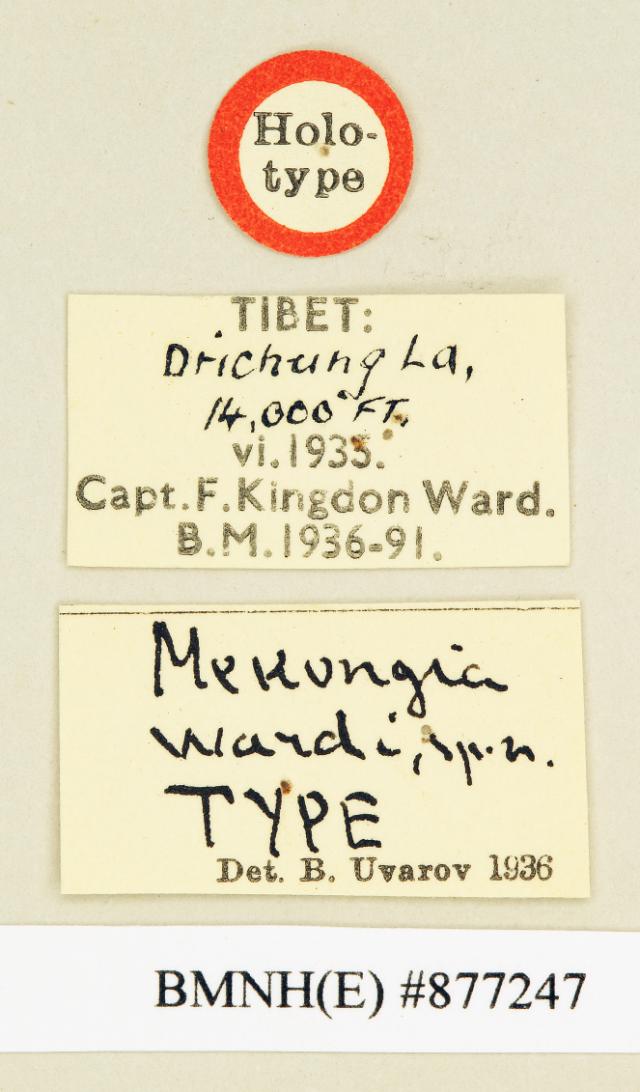 Holo-
type
TIBET:
Drichung La,
14,000 FT.
vi.1935.
Capt.F.Kingdon Ward.
B.M.1936-91.
Mekongia
wardi, sp.n.
TYPE
Det. B. Uvarov 1936
BMNH(E) #877247